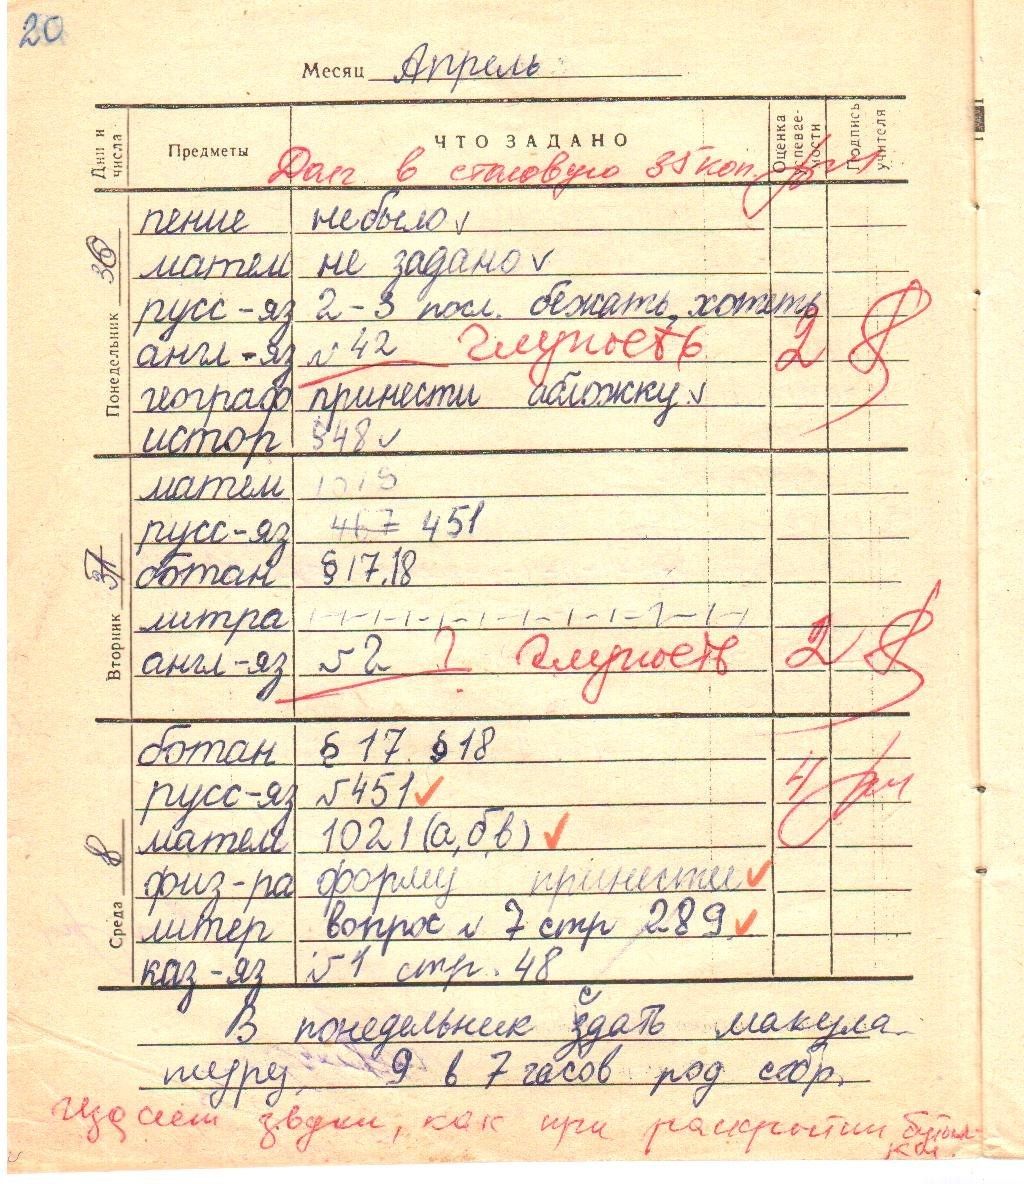 20
Месяц Апрель
Дни и числа Предметы ЧТО ЗАДАНО Оценка успевае- мости Подпись учителя
Долг в столовую 35 коп.
Понедельник
пение не было
матем не задано
русс-яз 2-3 посл. бежать, хотеть
англ-яз № 42 Глупость 2
географ принести абложку
истор §48
Вторник
матем 1019
русс-яз 467 451
ботан §17,18
литра
англ-яз №2 ? Глупость 2
Среда 8
ботан § 17. §18 4
русс-яз №451
матем 1021 (а,б,в)
физ-ра форму принести
литер вопрос № 7 стр 289
каз-яз №1 стр. 48
В понедельник сдать макула-
туру, 9 в 7 часов род собр.
Издает звуки, как при раскрытии бутыл-
ки.